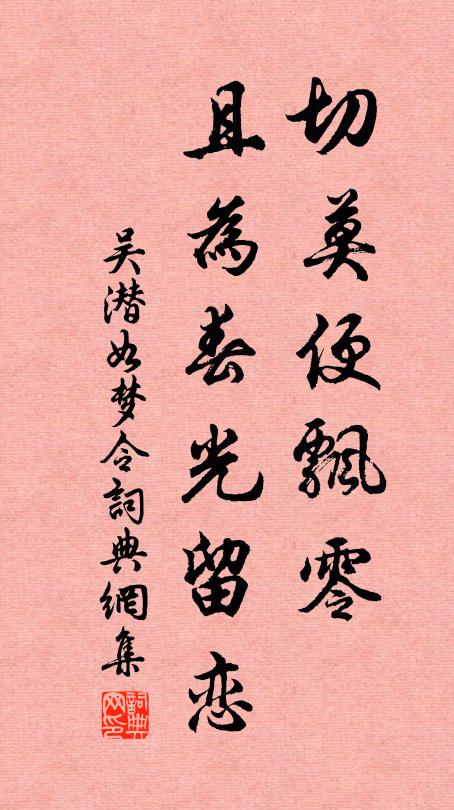 切莫便飄零
且為春光留恋
吴潜如梦令詞典網集
詞典网印